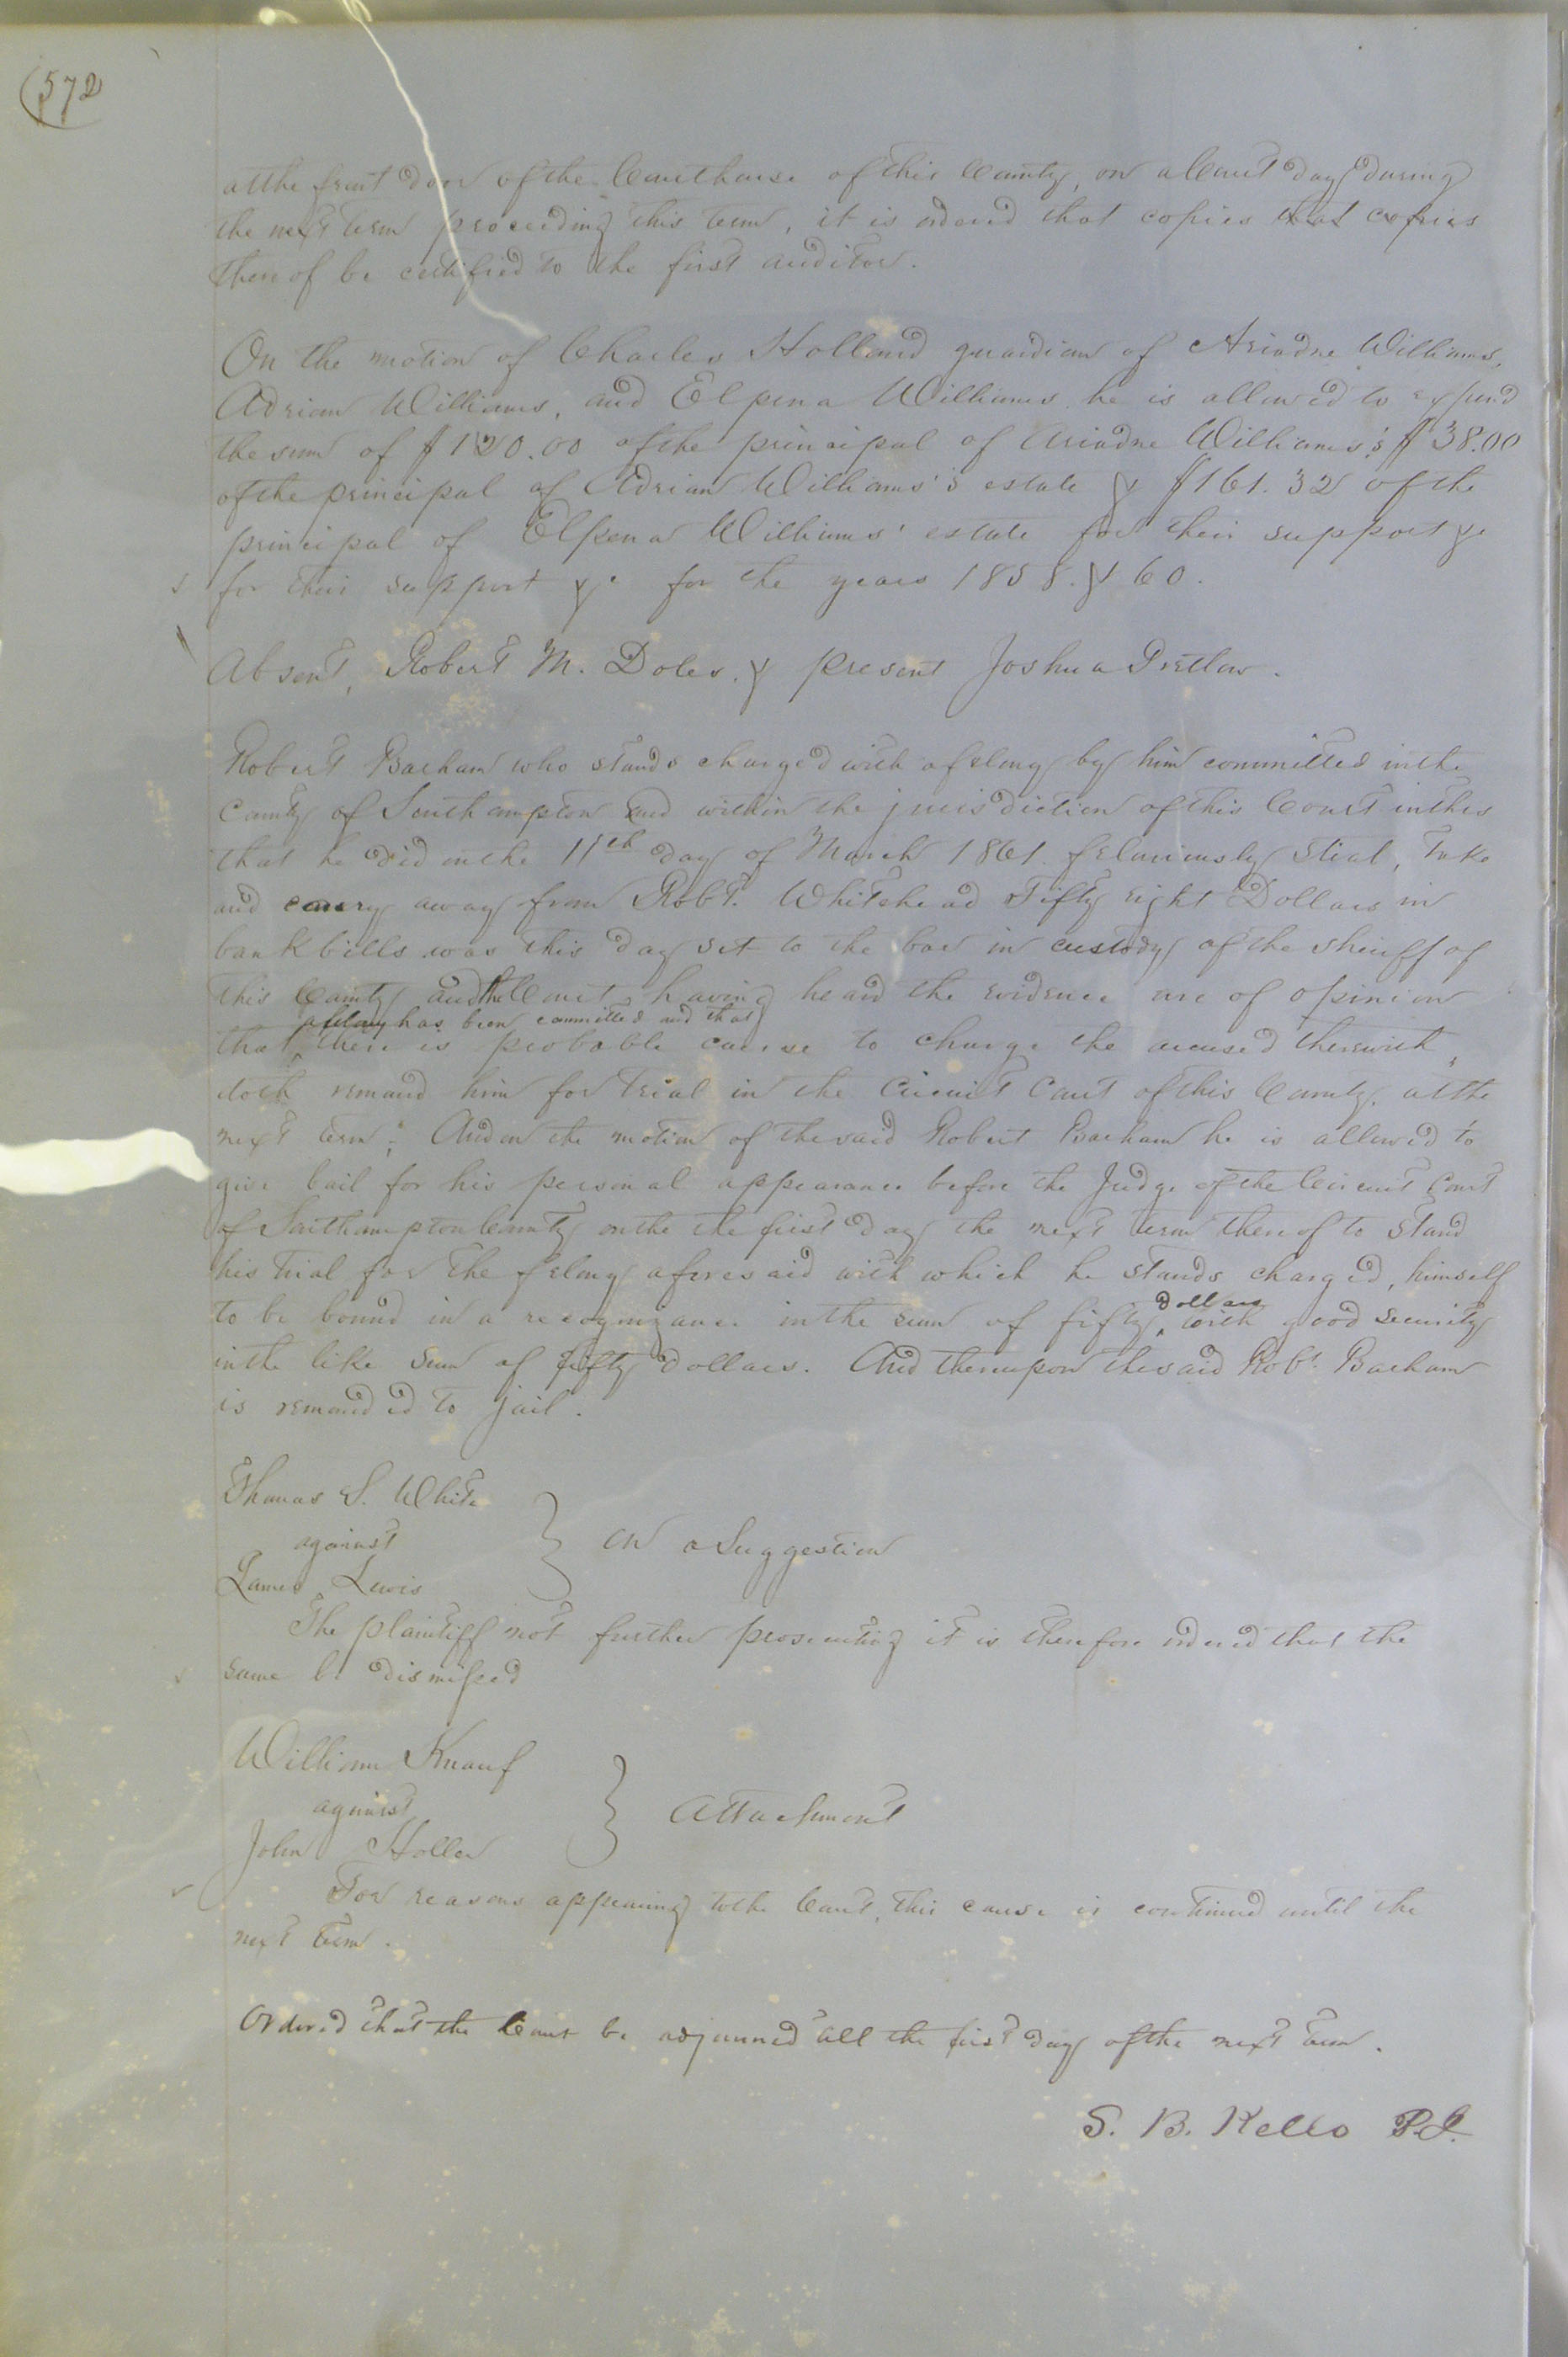 (572)
at the front door of the Courthouse of this County, on a Court day during
the next term proceeding this term, it is ordered that copies that copies
thereof be certified to the first auditor.
On the motion of Charles Holland guardian of Ariadne Williams,
Adrian Williams, and Elpena Williams he is allowed to expend
the sum of $120.00 of the principal of Ariadne Williams's $38.00
of the principal of Adrian Williams's estate & $161.32 of the
principal of Elpena Williams' estate for their support &c
for their support &c for the years 1858. & 60.
Absent, Robert M. Doles. & present Joshua Pretlow.
Robert Barham who stands charged with a felony by him committed in the
County of Southampton and within the jurisdiction of this Court in this
that he did on the 11th day of March 1861. feloniously steal, take
and carry away from Robt. Whitehead Fifty eight Dollars in
bank bills was this day set to the bar in custody of the sheriff of
this County and the Court having heard the evidence are of opinion
a felony has been committed and that
that there is probable cause to charge the accused therewith,
doth remand him for trial in the Circuit Court of this County, at the
next term; And on the motion of the said Robert Barham he is allowed to
give bail for his personal appearance before the Judge of the Circuit Court
of Southampton County on the the first day the next term thereof to stand
his trial for the felony aforesaid with which he stands charged, himself
to be bound in a recognizance in the sum of fifty dollars with good security
in the like sum of fifty dollars. And thereupon the said Robt. Barham
is remanded to jail.
Thomas S. White
against } on a Suggestion
James Lewis
The plaintiff not further prosecuting it is therefore ordered that the
same be dismissed
William Knauf
against } Attachment
John Holler
For reasons appearing to the Court, this cause is continued until the
next term.
Ordered that the Court be adjourned till the first day of the next term.
S. B. Kello P.J.